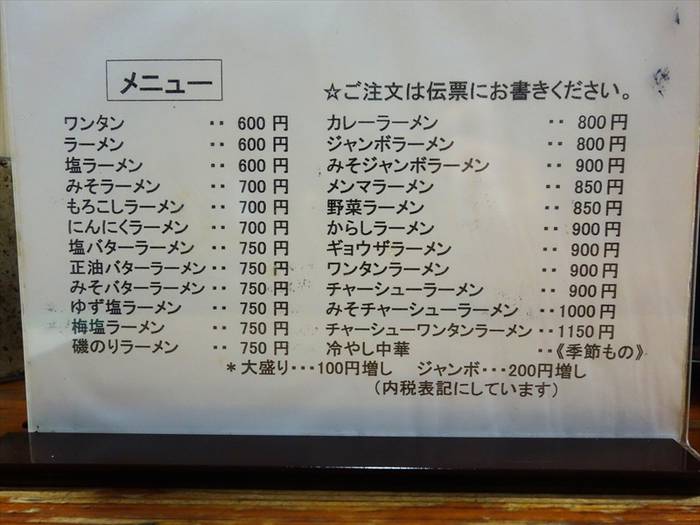 メニュー
☆ご注文は伝票にお書きください。
ワンタン ‥ 600 円
ラーメン ‥ 600 円
塩ラーメン ‥ 600 円
みそラーメン ‥ 700 円
もろこしラーメン ‥ 700 円
にんにくラーメン ‥ 700 円
塩バターラーメン ‥ 750 円
正油バターラーメン ‥ 750 円
みそバターラーメン ‥ 750 円
ゆず塩ラーメン ‥ 750 円
梅塩ラーメン ‥ 750 円
磯のりラーメン ‥ 750 円
カレーラーメン ‥ 800 円
ジャンボラーメン ‥ 800 円
みそジャンボラーメン ‥ 900 円
メンマラーメン ‥ 850 円
野菜ラーメン ‥ 850 円
からしラーメン ‥ 900 円
ギョウザラーメン ‥ 900 円
ワンタンラーメン ‥ 900 円
チャーシューラーメン ‥ 900 円
みそチャーシューラーメン ‥ 1000 円
チャーシューワンタンラーメン ‥ 1150 円
冷やし中華 ‥《季節もの》
＊大盛り‥･100円増し ジャンボ‥･200円増し
（内税表記にしています）